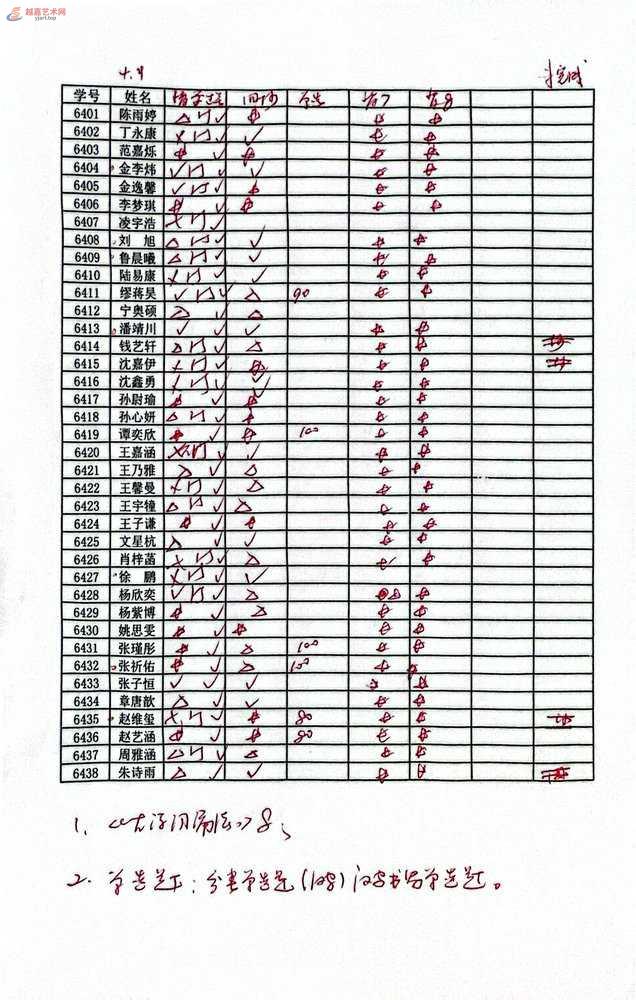 越嘉艺术网
yjart.top
学号 姓名
6401 陈雨婷
6402 丁永康
6403 范嘉烁
6404 金李炜
6405 金逸馨
6406 李梦琪
6407 凌宇浩
6408 刘 旭
6409 鲁晨曦
6410 陆易康
6411 缪蒋昊 90
6412 宁奥硕
6413 潘靖川
6414 钱艺轩
6415 沈嘉伊
6416 沈鑫勇
6417 孙尉瑜
6418 孙心妍
6419 谭奕欣 100
6420 王嘉涵
6421 王乃雅
6422 王馨曼
6423 王宇犝
6424 王子谦
6425 文星杭
6426 肖梓菡
6427 徐 鹏
6428 杨欣奕
6429 杨紫博
6430 姚思雯
6431 张瑾彤 100
6432 张祈佑 100
6433 张子恒
6434 章唐歆
6435 赵维玺 80
6436 赵艺涵 80
6437 周雅涵
6438 朱诗雨
1、
2. 单选题：分类单选题